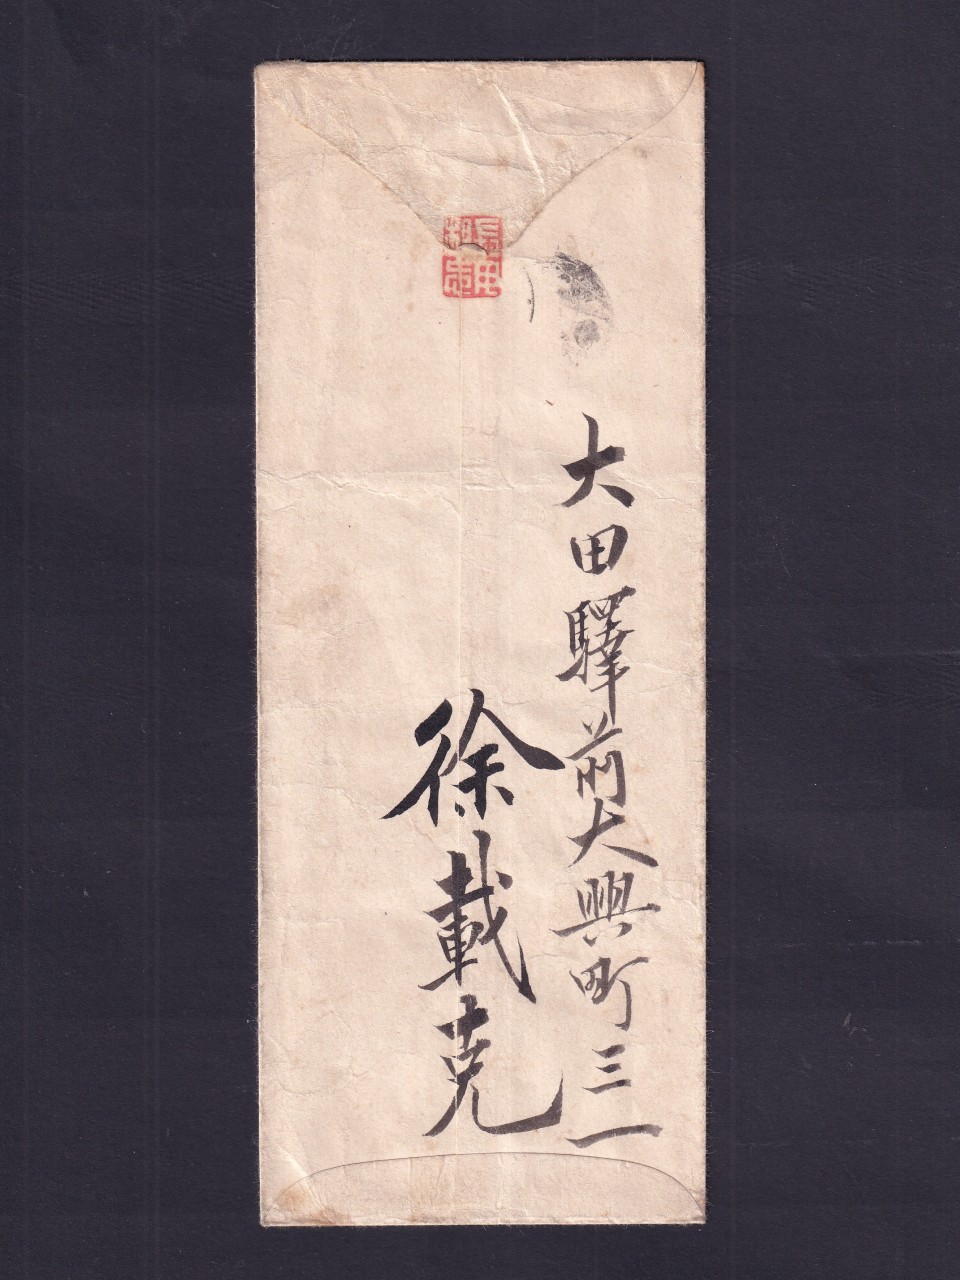 大田驛前大興町三一
徐載克